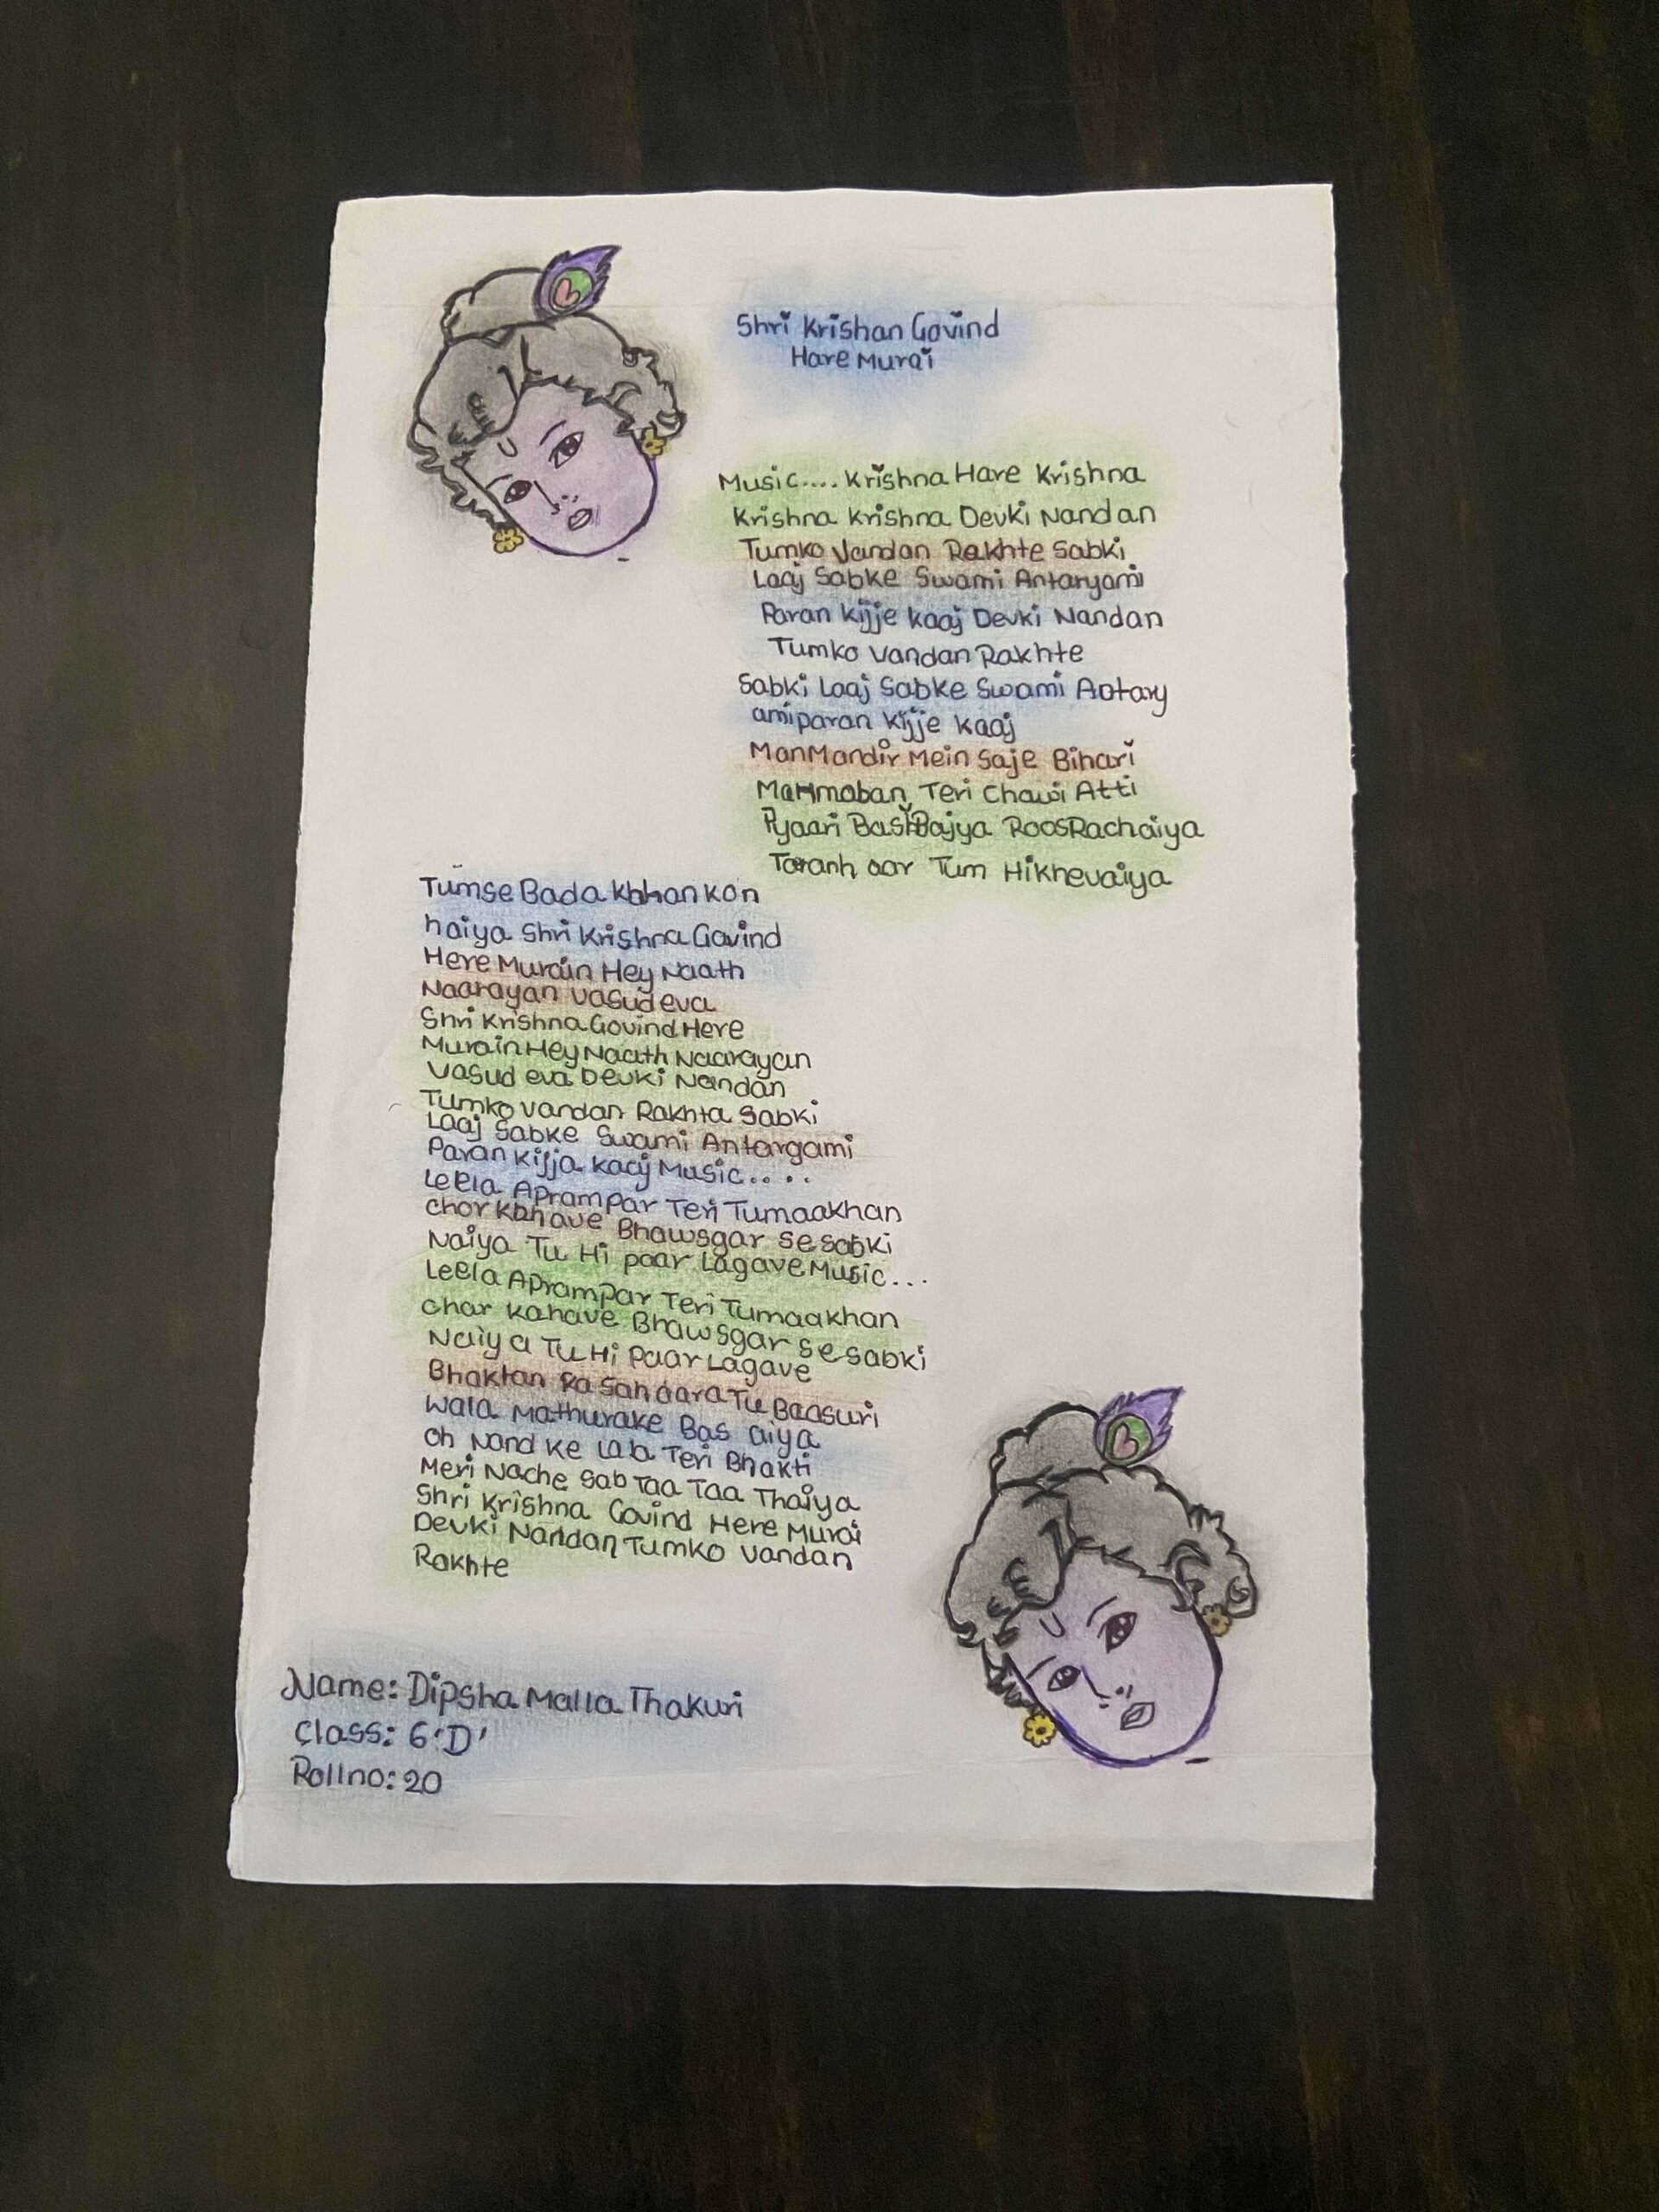 Shri Krishan Govind
Hare Murai
Music.... Krishna Hare Krishna
Krishna Krishna Devki Nandan
Tumko Vandan Rakhte Sabki
Laaj Sabke Swami Antaryami
Paran Kijje kaaj Devki Nandan
Tumko Vandan Rakhte
Sabki Laaj Sabke Swami Antary
amiparan Kijje kaaj
ManMandir Mein Saje Bihari
Teri Chawi Atti
Pyaari Bajya RoosRachaiya
oar Tum Hikhevaiya
Tumse Bada kon
haiya Shri Krishna Govind
Here Murain Hey Naath
Naarayan Vasudeva
Shri Krishna Govind Here
Murain Hey Naath Naarayan
Vasudeva Devki Nandan
Tumko Vandan Rakhta Sabki
Laaj Sabke Swami Antargami
Paran Kijja Kaaj Music....
Leela Aprampar Teri Tumaakhan
chor Bhawsgar Se Sabki
Naiya Tu Hi paar Lagave Music...
Leela Aprampar Teri Tumaakhan
char Kahave Bhawsgar Se Sabki
Naiya Tu Hi Paar Lagave
Bhaktan Tu Baasuri
Wala Mathurake Bas aiya
Oh Nand Ke Lala Teri Bhakti
Meri Nache Sab Taa Taa Thaiya
Shri Krishna Govind Here Murai
Devki Nandan Tumko Vandan
Rakhte
Name: Dipsha Malla Thakuri
Class: 6 'D'
Rollno: 20